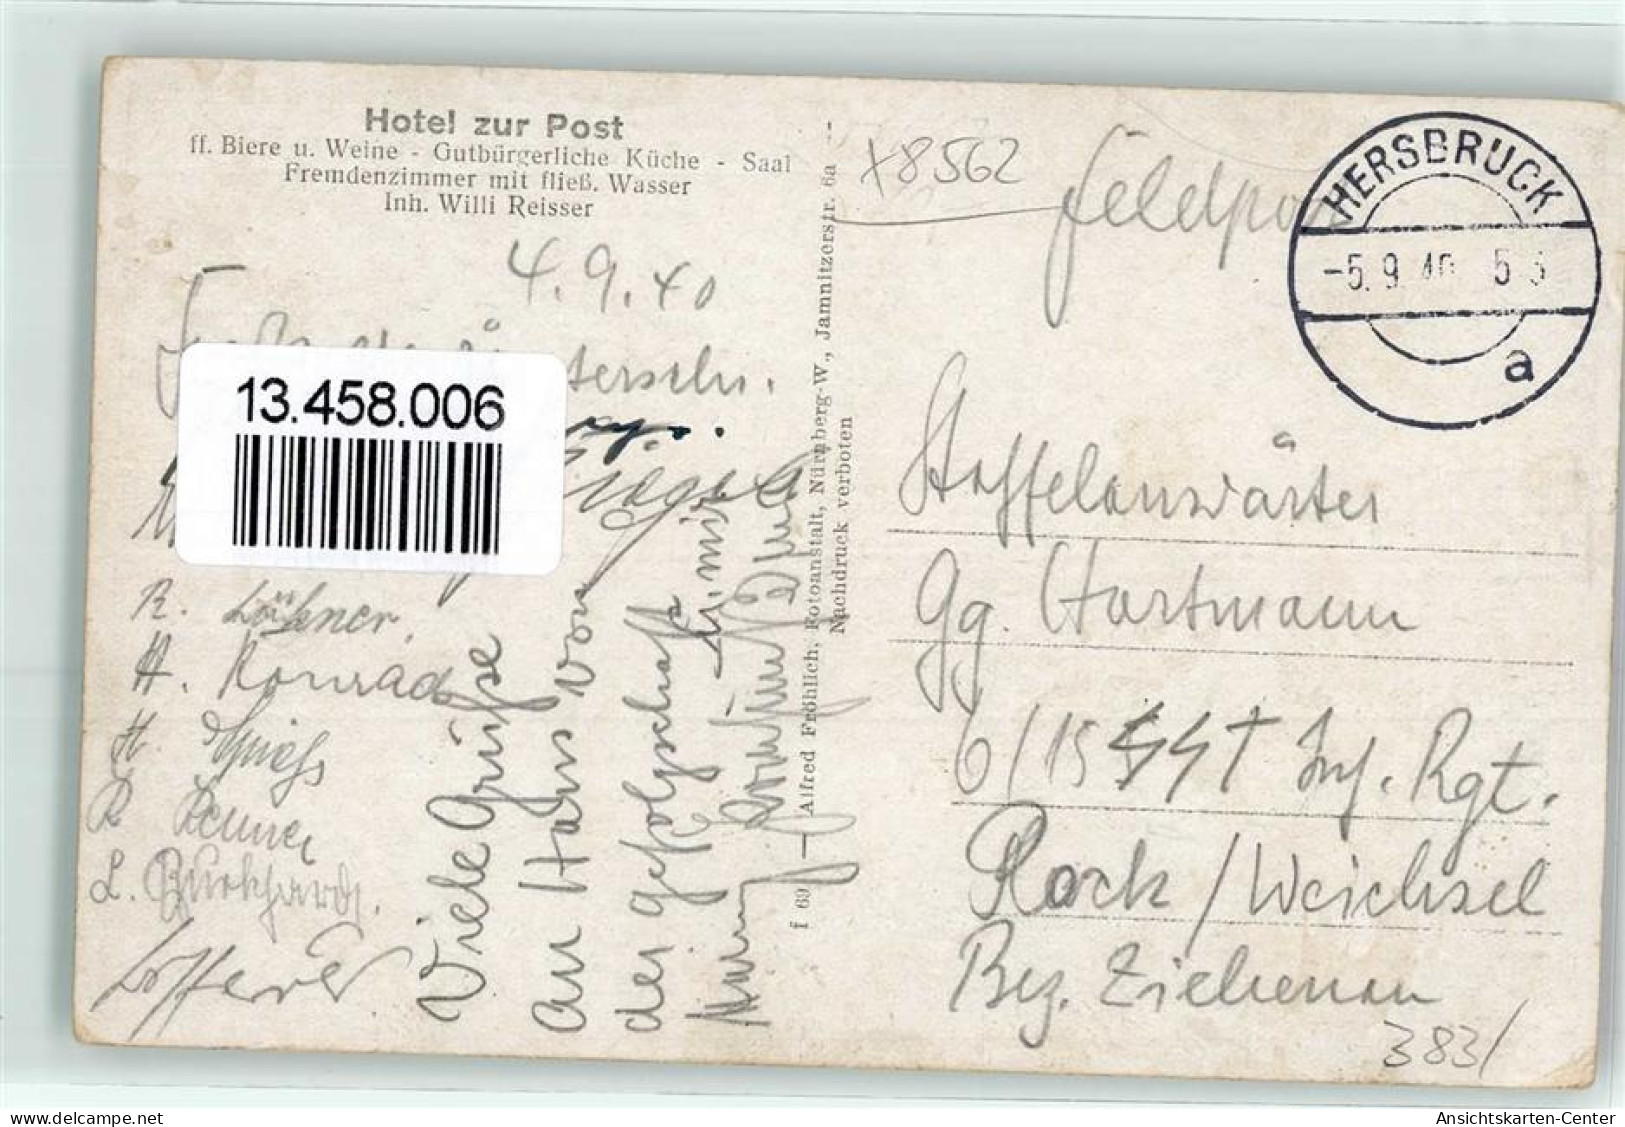 Hotel zur Post
ff. Biere u. Weine - Gutbürgerliche Küche - Saal
Fremdenzimmer mit fließ. Wasser
Inh. Willi Reisser
4.9.40
R. Löhner.
H. Konrad
H. Spieß
R. Renner
L. Burkhardt.
Viele Grüße
an Hans von
der Gefolgschaft
f 69 — Alfred Fröhlich, Fotoanstalt, Nürnberg-W., Jamnitzerstr. 6a —
Nachdruck verboten
x8562
Feldpost
HERSBRUCK
-5.9.40
a
Staffelanwärter
Gg. Hartmann
6/15 SS T Inf. Rgt.
Plock / Weichsel
Bez. Zichenau
383/
13.458.006
Ansichtskarten-Center
www.delcampe.net